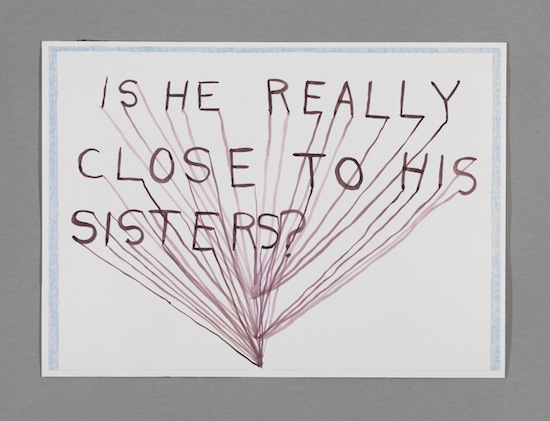 IS HE REALLY
CLOSE TO HIS
SISTERS?